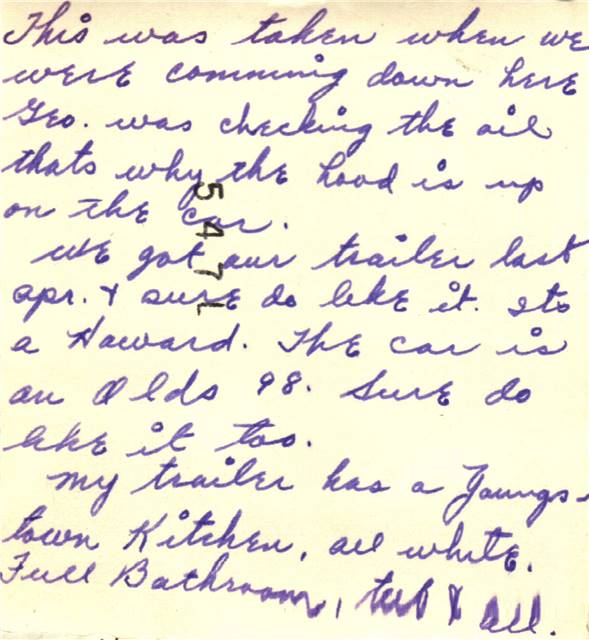 This was taken when we
were comming down here
Geo. was checking the oil
thats why the hood is up
on the car.
We got our trailer last
apr. & sure do like it. Its
a Howard. The car is
an Olds 98. Sure do
like it too.
My trailer has a Youngs-
town Kitchen, all white.
Full Bathroom, tub & all.
547L